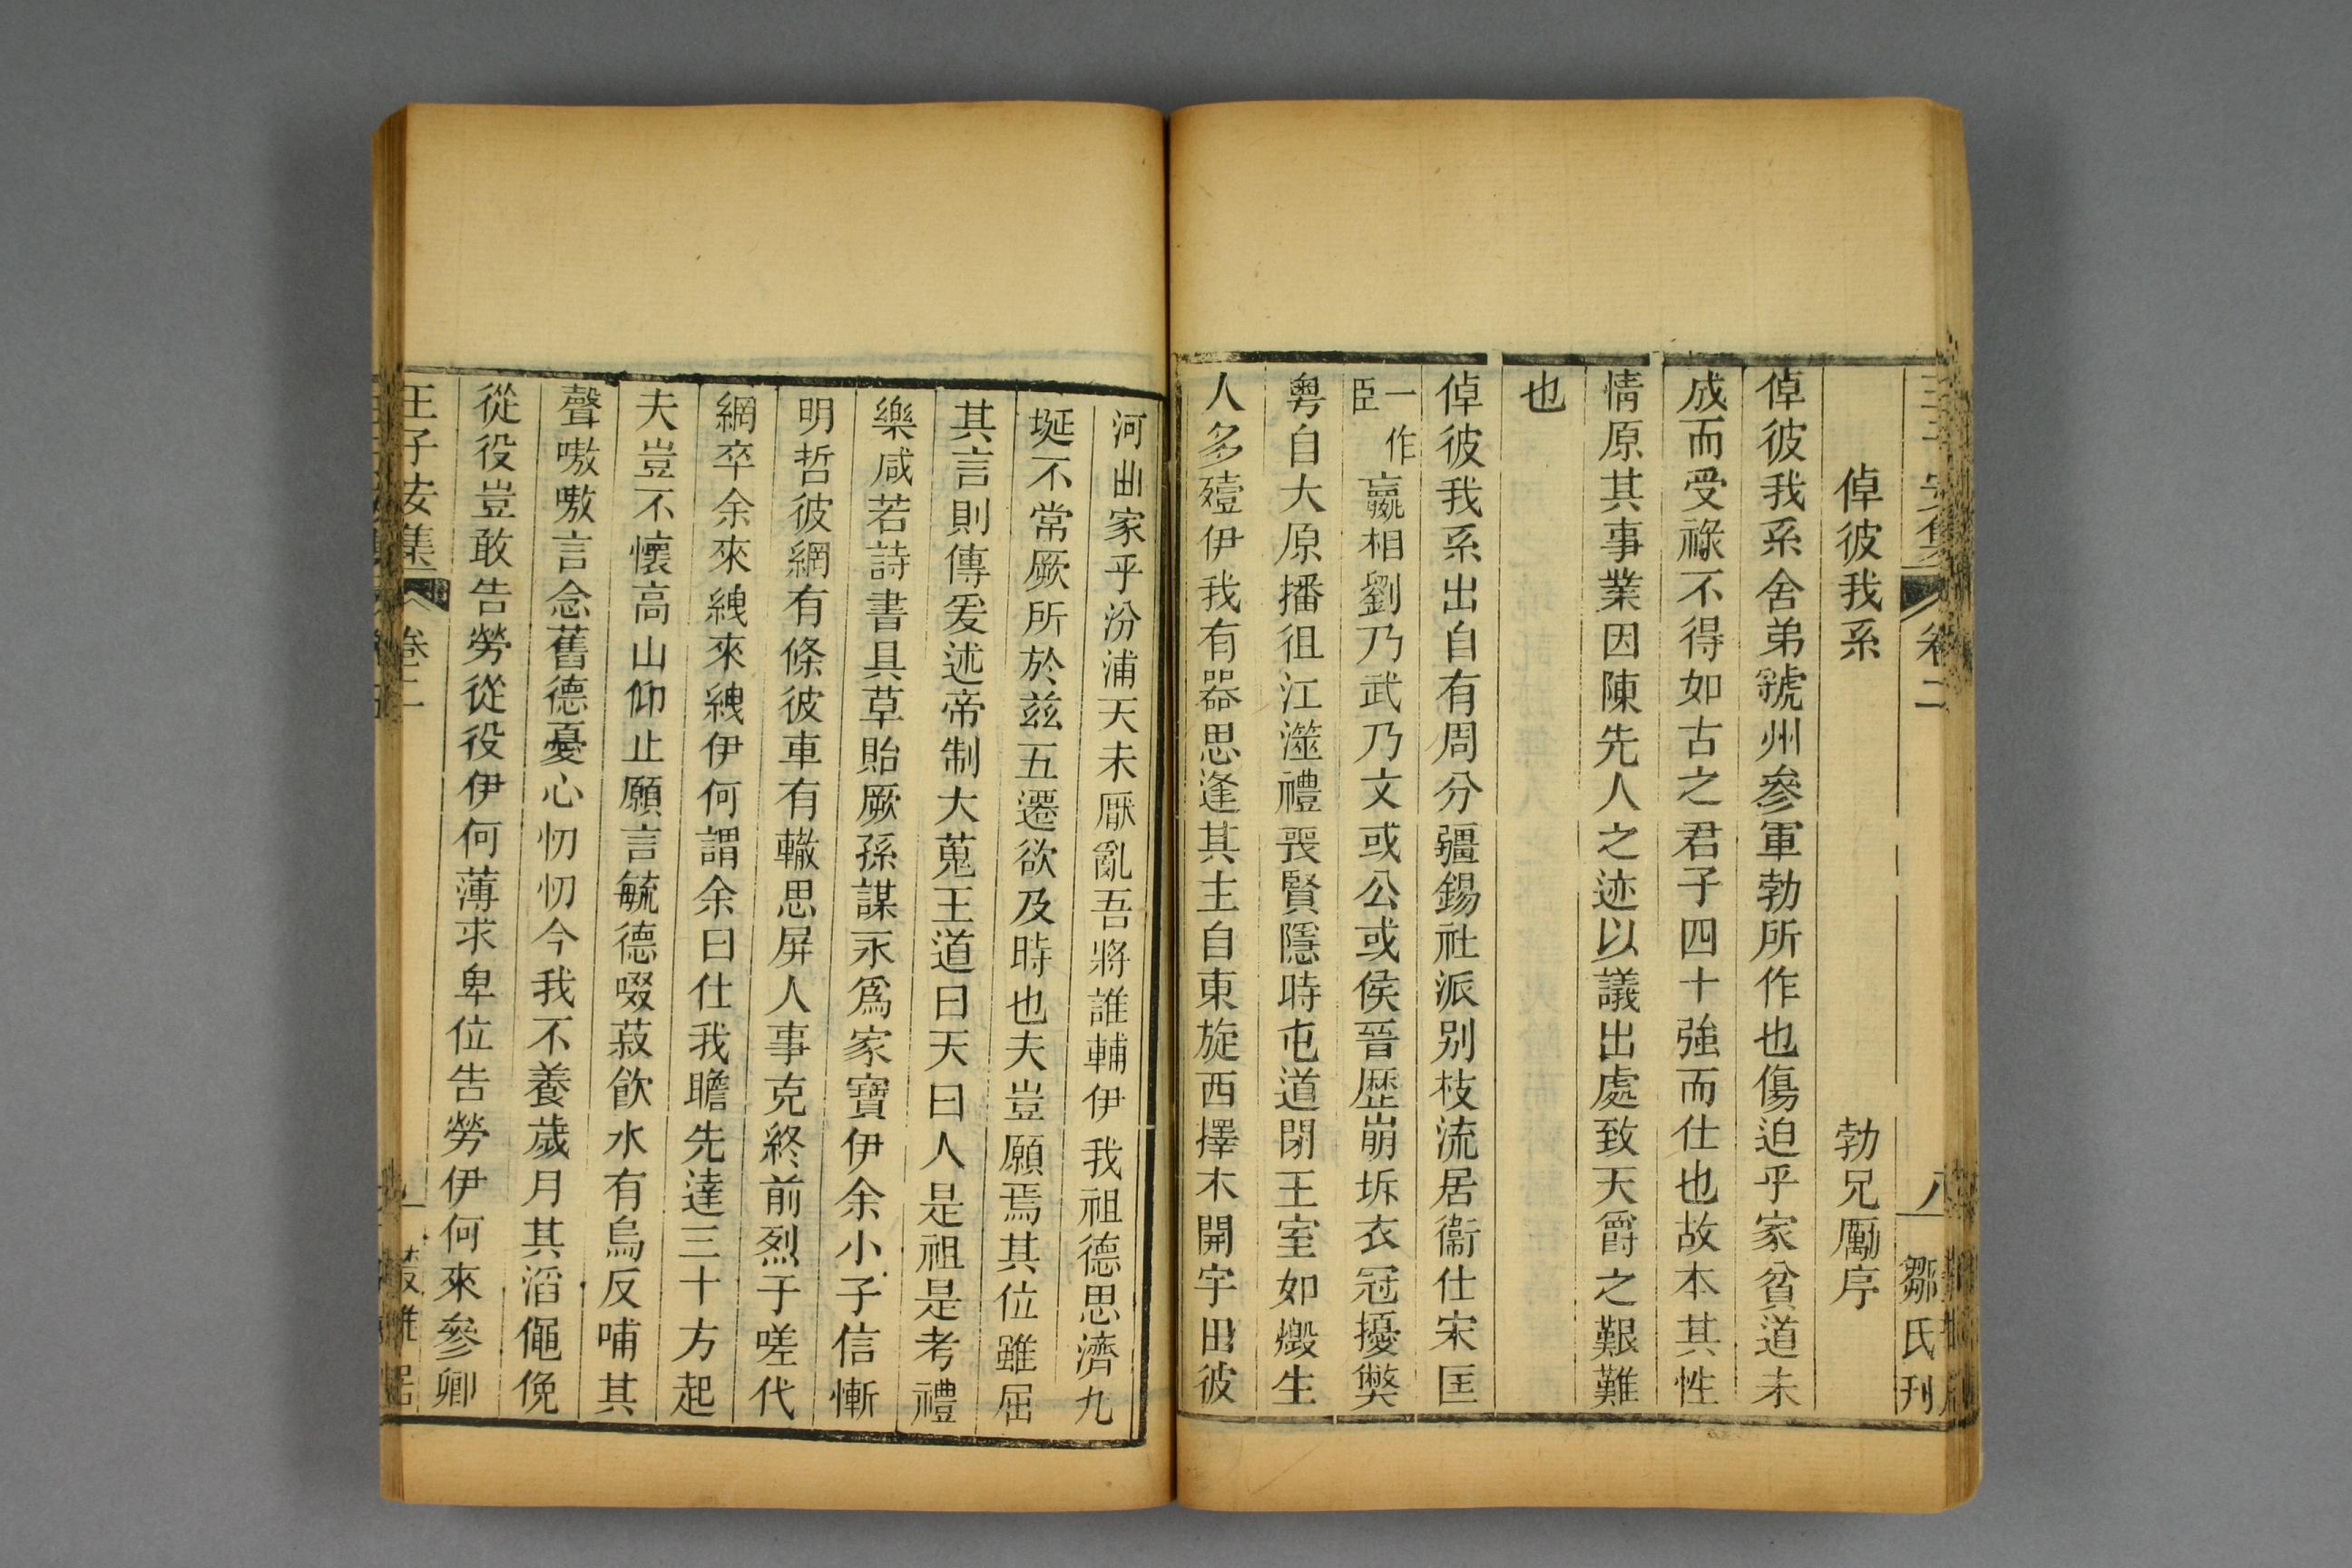 王子安集 卷二 八 鄒氏刊
倬彼我系 勃兄勵序
倬彼我系舍弟虢州參軍勃所作也傷迫乎家貧道未
成而受祿不得如古之君子四十強而仕也故本其性
情原其事業因陳先人之迹以議出處致天爵之艱難
也
倬彼我系出自有周分疆錫社派别枝流居衞仕宋匡
一作臣嬴相劉乃武乃文或公或侯晉歴崩坼衣冠擾獘
粵自大原播徂江澨禮喪賢隱時屯道閉王室如燬生
人多殪伊我有器思逢其主自東旋西擇木開宇田彼
河曲家乎汾浦天未厭亂吾將誰輔伊我祖德思濟九
埏不常厥所於兹五遷欲及時也夫豈願焉其位雖屈
其言則傳爰述帝制大蒐王道曰天曰人是祖是考禮
樂咸若詩書具草貽厥孫謀永爲家寶伊余小子信慚
明哲彼網有條彼車有轍思屏人事克終前烈于嗟代
網卒余來紲來紲伊何謂余曰仕我瞻先達三十方起
夫豈不懷高山仰止願言毓德啜菽飲水有烏反哺其
聲嗷嗷言念舊德憂心忉忉今我不養歲月其滔僶俛
從役豈敢告勞從役伊何薄求卑位告勞伊何來參卿
王子安集 卷二